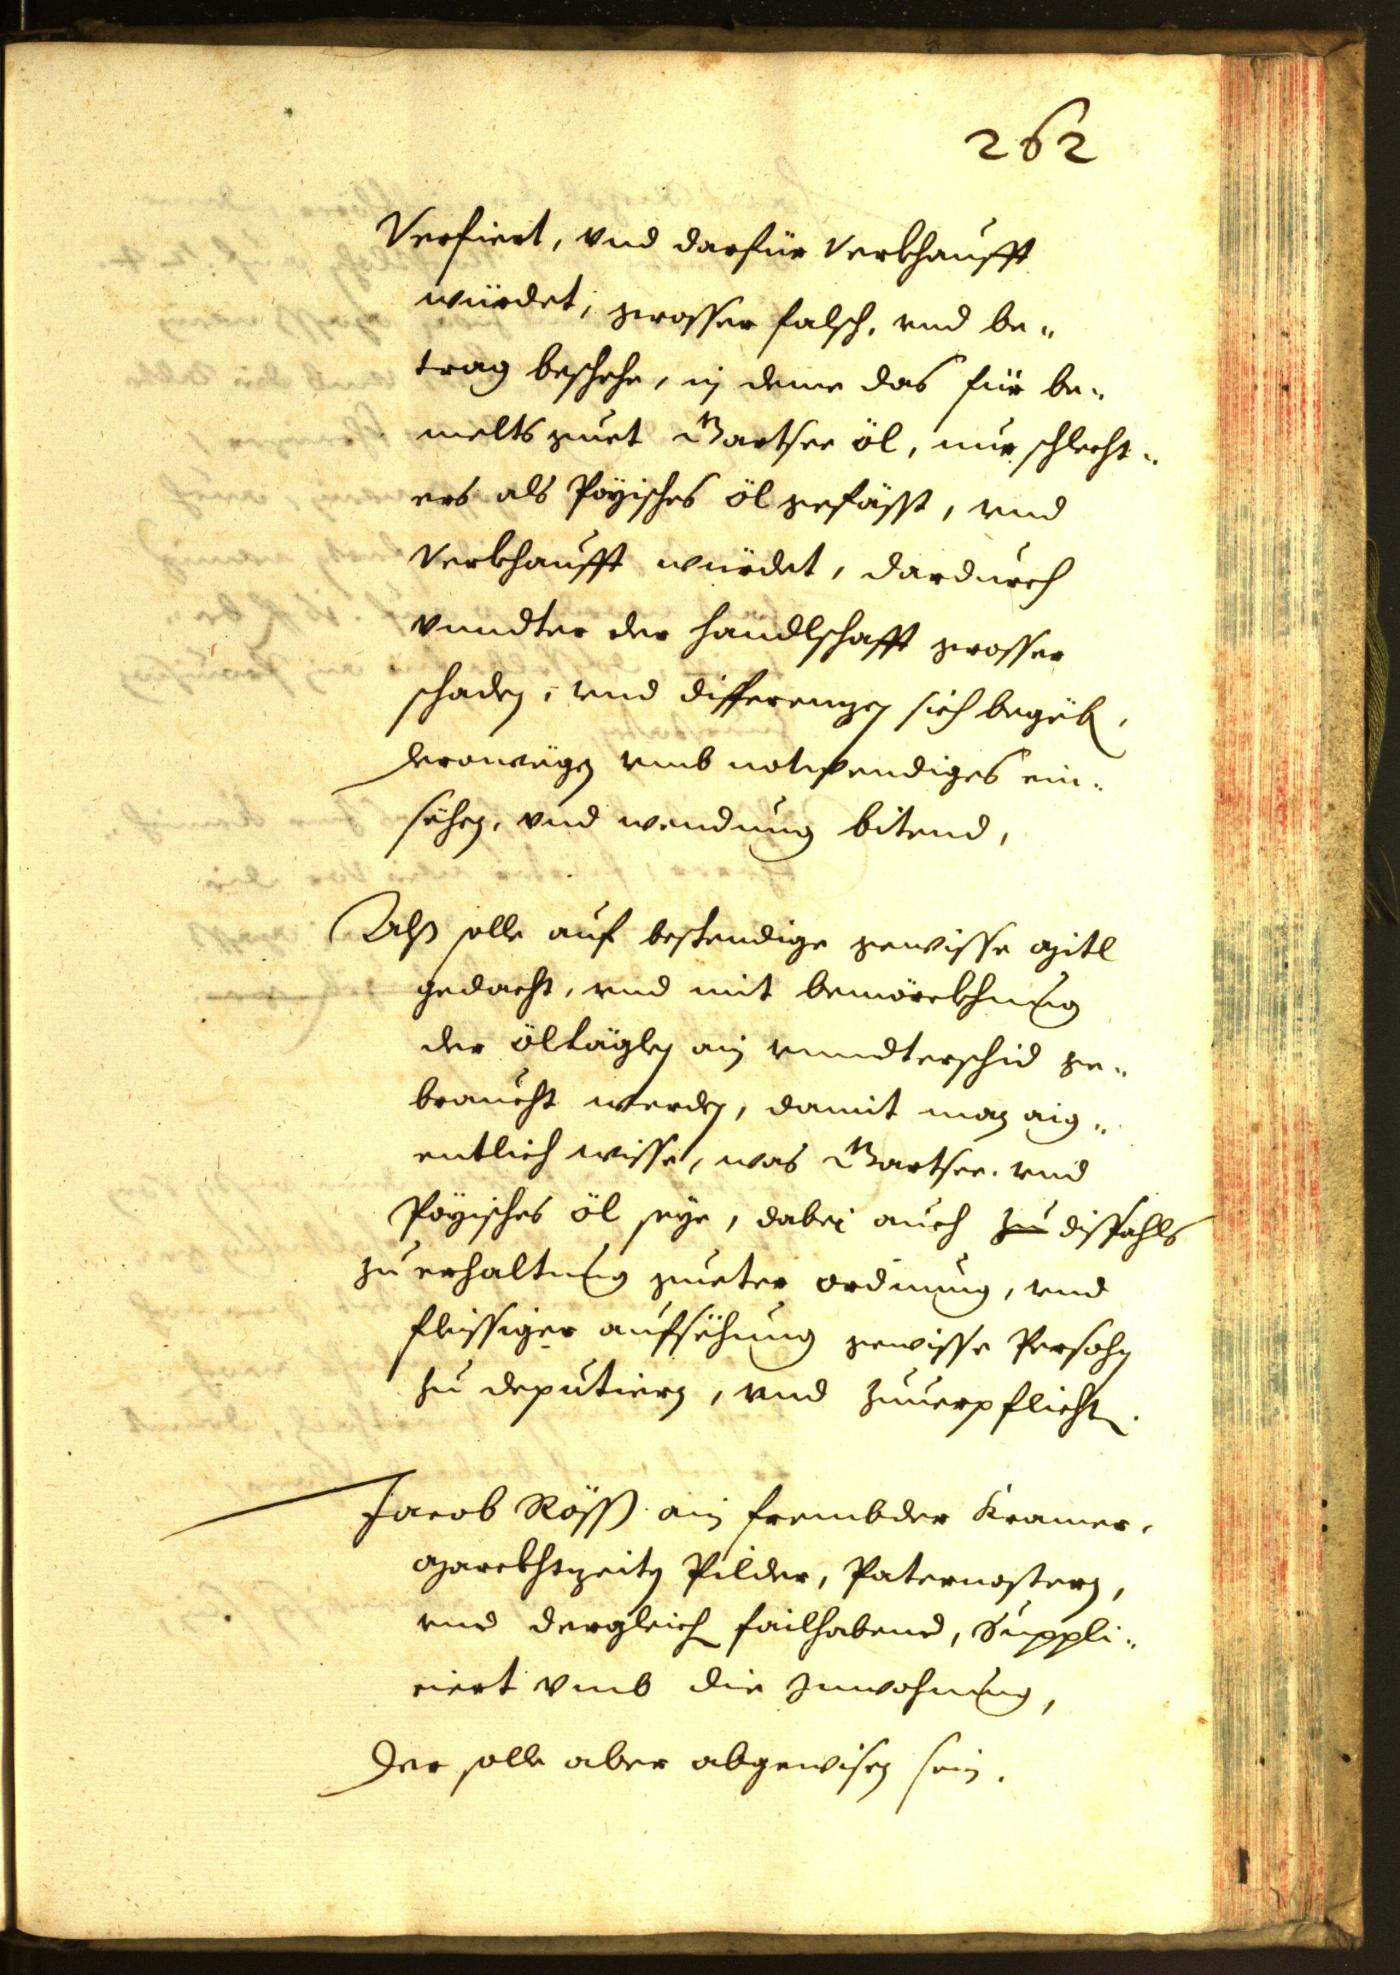 262
Verfiert, vnd darfür Verkhaufft
würdet, grosser falsch, vnd be„
trag beschehe, in deme das für be„
melts guet Gartsee öl, nur schlecht„
ers als Pöyisches öl gefässt, vnd
Verkhaufft würdet, dardurch
vnndter der handlschafft grosser
schaden, vnd differenzen sich begäb,
derowegen vmb notwendiges ein„
sehen, vnd wendung bitend,
Alß solle auf bestendige gewisse mitl
gedacht, vnd mit bemörckhnung
der öllägln ain vnndterschid ge„
braucht werden, damit man aig„
entlich wisse, was Gartsee, vnd
Pöyisches öl seye, dabei auch zu disfahls
zu erhaltung gueter ordnung, vnd
fleissiger aufsehung gewisse Persohn
zu deputiern, vnd zuuerpflichten.
Jacob Röss ain frembder Kramer,
marckhtzeiten Pilder, Paternostern,
vnd dergleichen failhabend, Suppli„
ciert vmb die Inwohnung,
Der solle aber abgewisen sein.